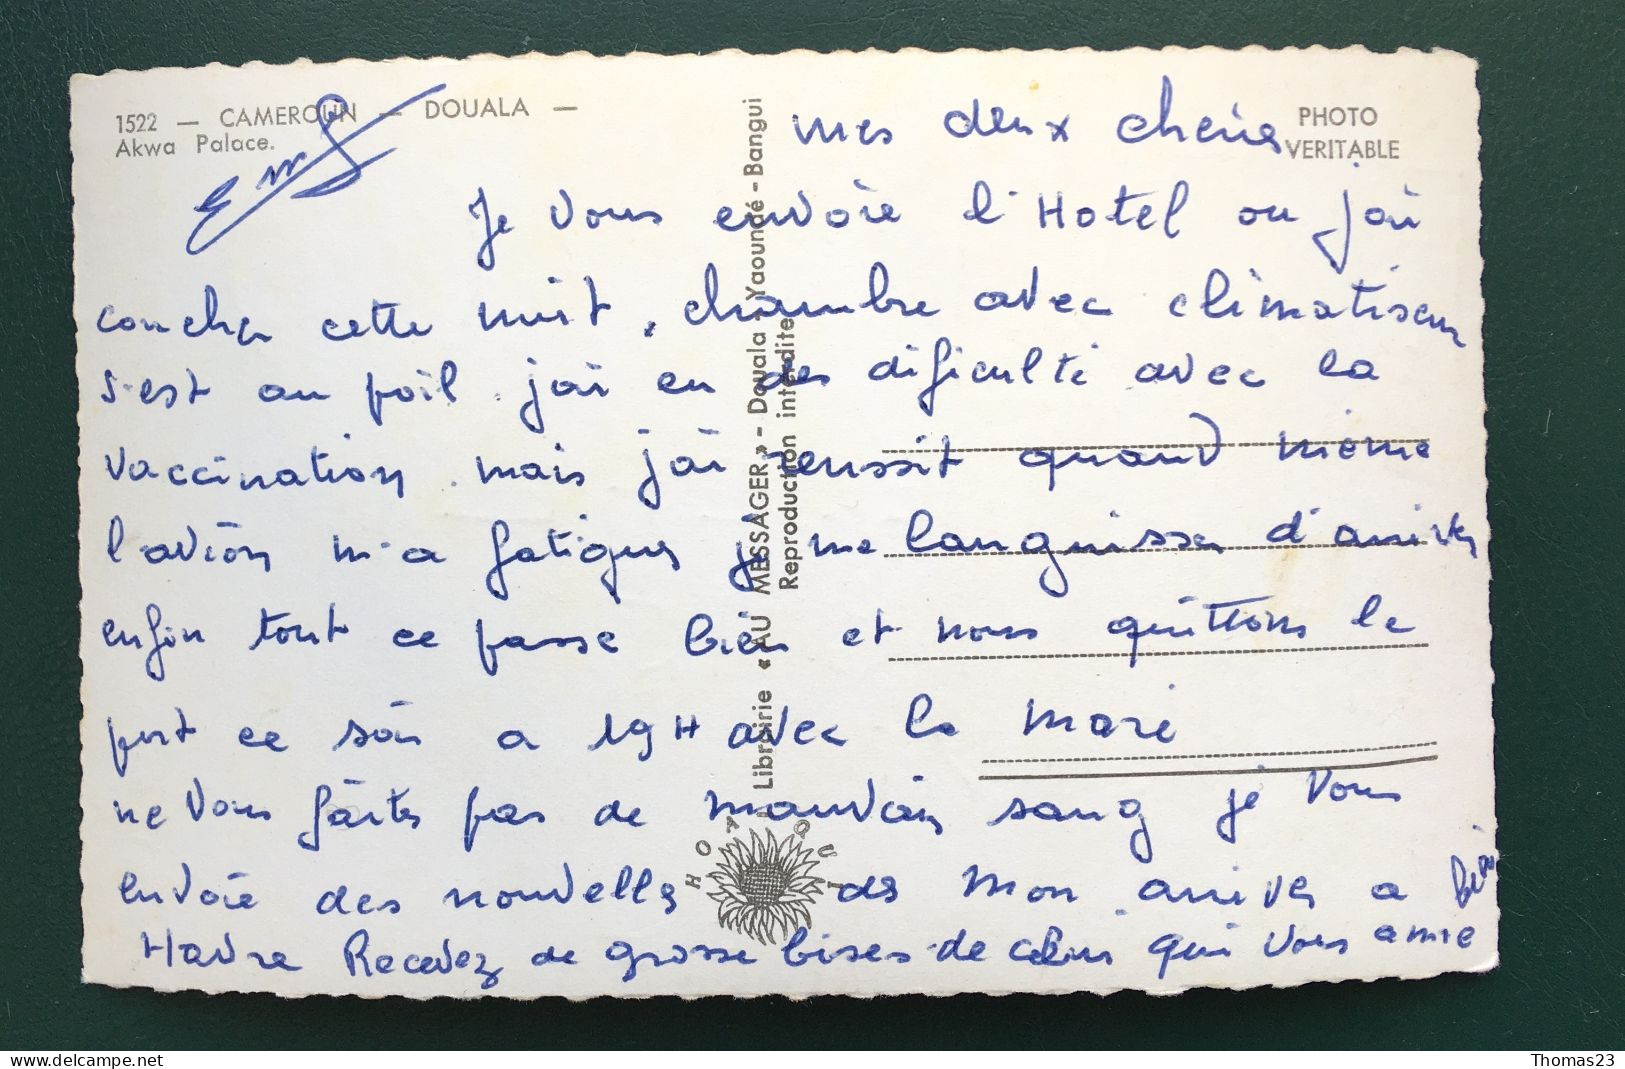 1522 — CAMEROUN — DOUALA —
Akwa Palace.
PHOTO
VERITABLE
mes deux cheries
Je vous envoie l'Hotel ou j'ai
coucher cette nuit, chambre avec climatiseur
s'est au poil. j'ai eu des dificulté avec la
vaccination. mais j'ai reussit quand meme
l'avion m'a fatiguer je me languisser d'arriver
enfin tout ce passe bien et nous quittons le
port ce soir a 19H avec la maré
ne vous faites pas de mauvais sang je vous
envoie des nouvelles des mon arriver a
Havre Recevez de grosse bises de celui qui vous aime
Librairie «AU MESSAGER» - Douala - Yaoundé - Bangui
Reproduction interdite
HOA-QUI
Thomas23
delcampe.net